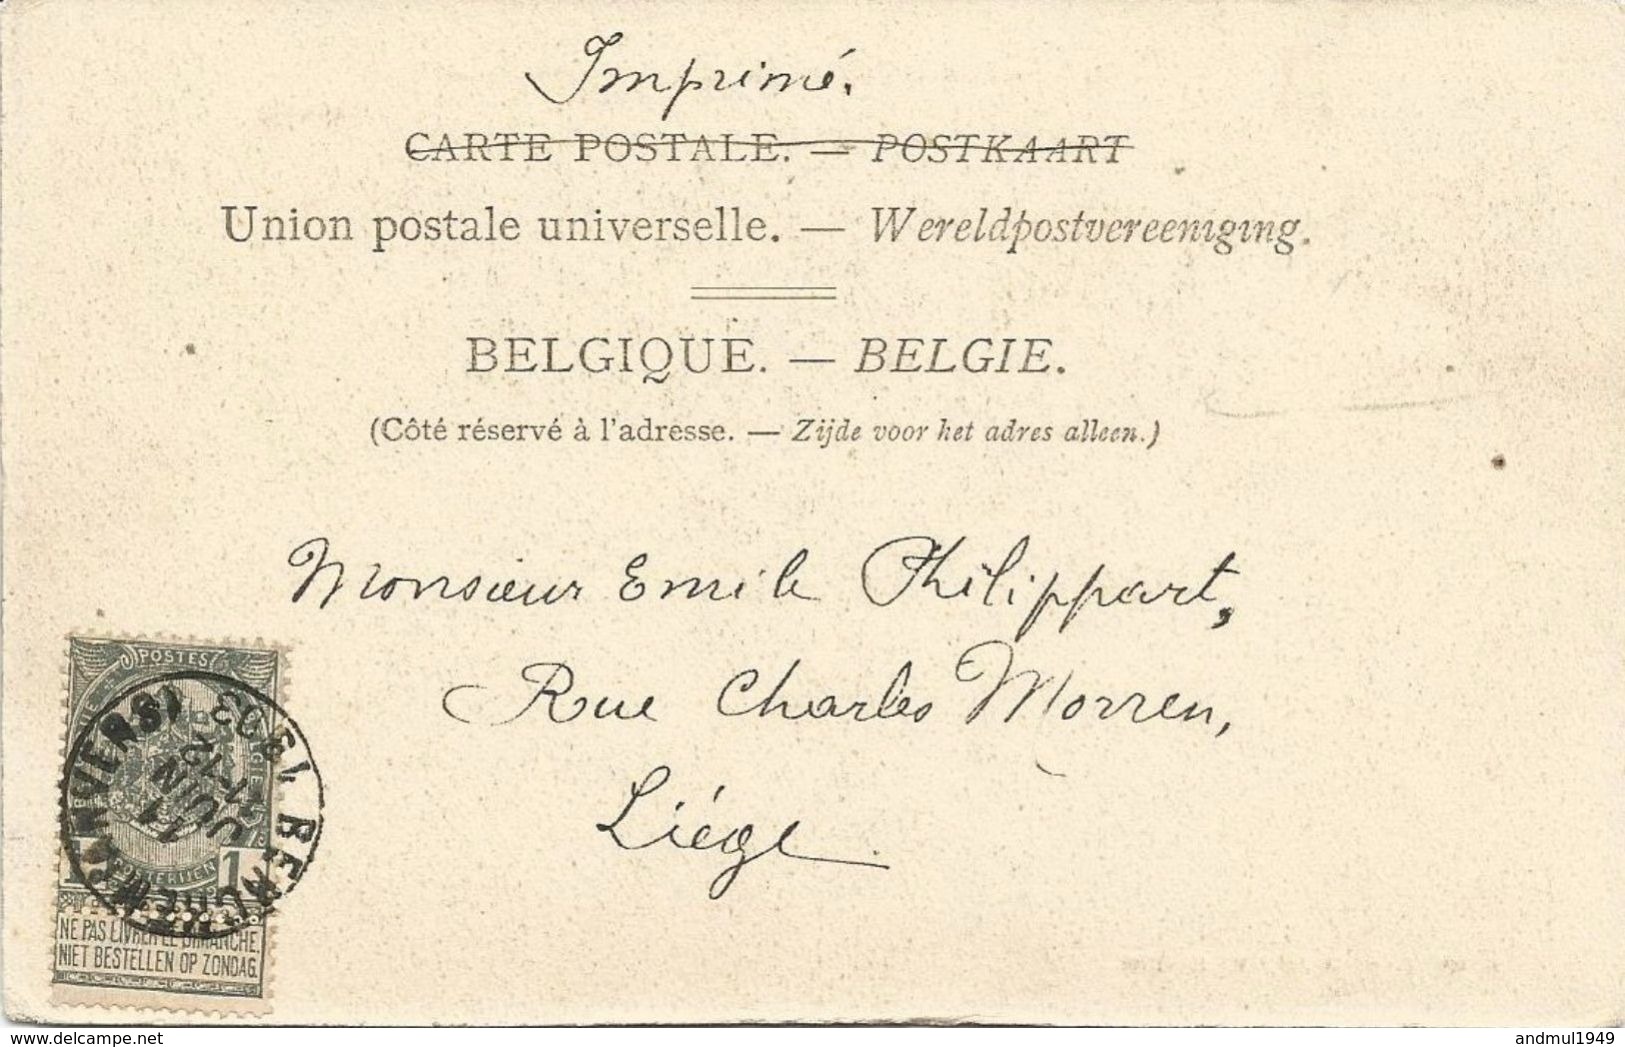 Imprimé.
CARTE POSTALE. — POSTKAART
Union postale universelle. — Wereldpostvereeniging.
BELGIQUE. — BELGIE.
(Côté réservé à l'adresse. — Zijde voor het adres alleen.)
Monsieur Emile Philippart,
Rue Charles Morren,
Liége
POSTES
BERCHEM (ANVERS) 1903
11
JUIN
11-12
1 1
NE PAS LIVRER LE DIMANCHE.
NIET BESTELLEN OP ZONDAG.
andmul1949